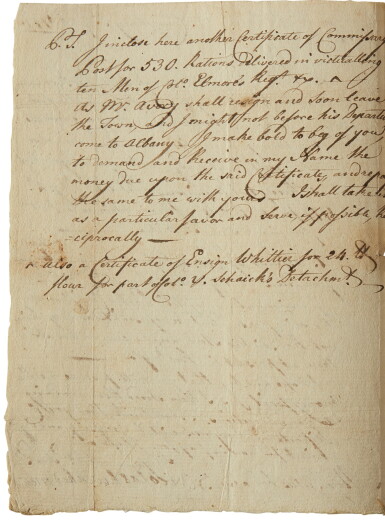 P.S. I inclose here another Certificate of Commissary
Post for 530. Rations delivered in victualling
ten Men of Colo. Elmore's Regt. &c. ^
As Mr. Avery shall resign and soon leave
the Town, and I might not before his Depart
come to Albany. I make bold to beg of you
to demand and Receive in my Name the
money due upon the said Certificate, and
the same to me with yours — I shall take
as a particular favor and serve if possible
ciprocally —
^ also a Certificate of Ensign Whittier for 24. lb
flour for part of Colo. V. Schaick's Detachmt.